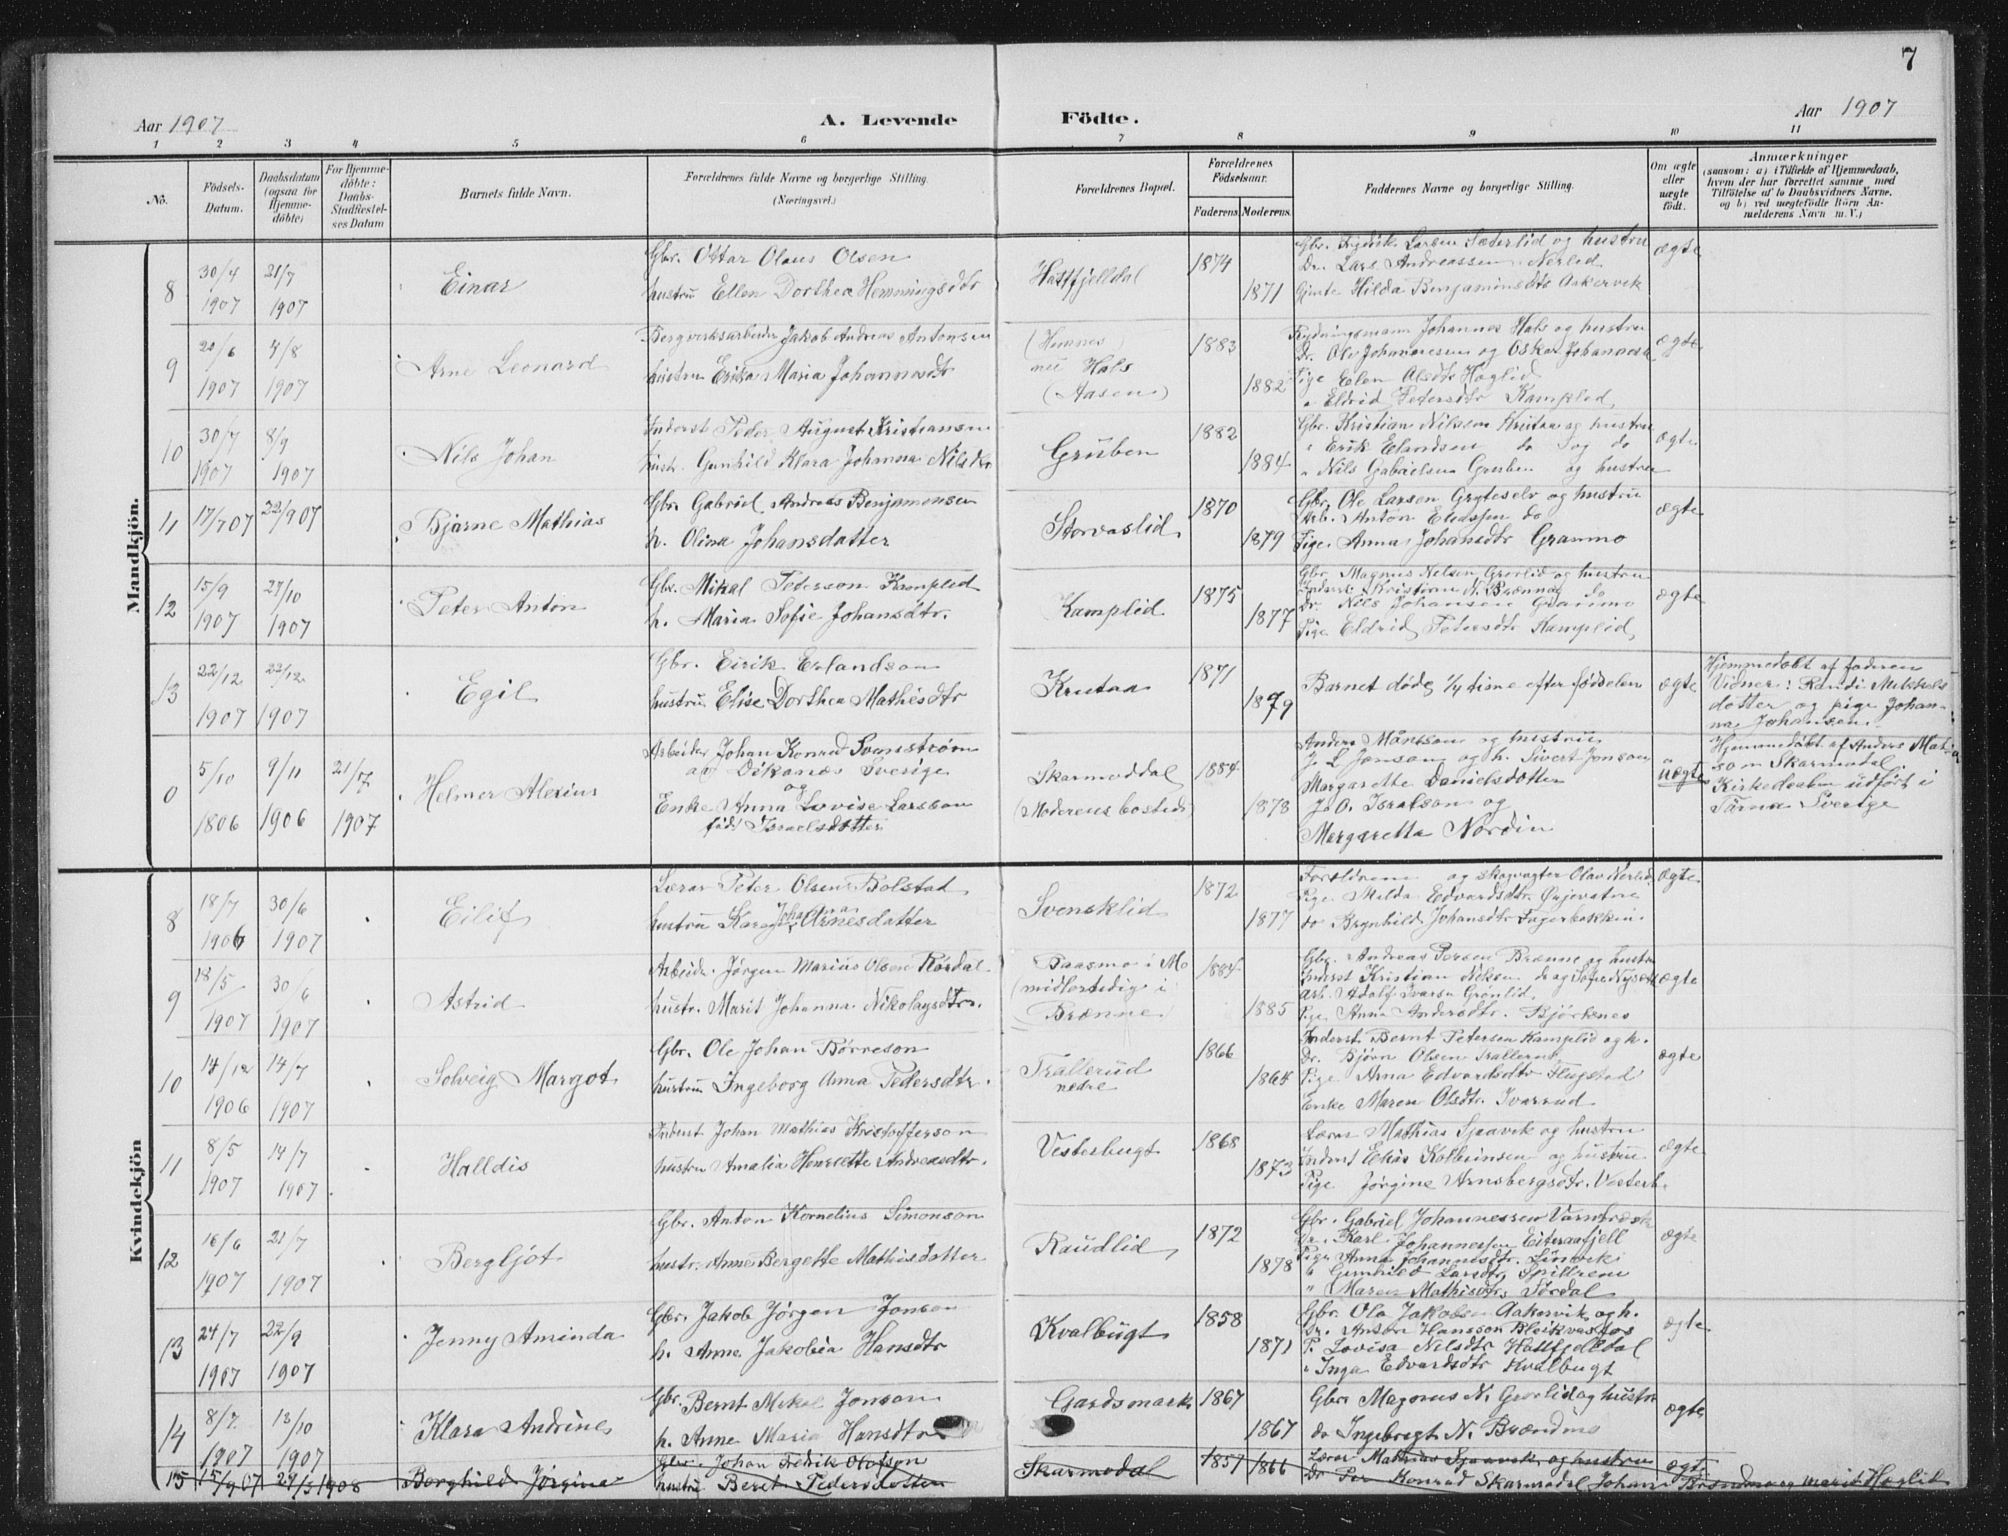 7
Aar 1907
A. Levende
Födte.
Aar 1907
1 2 3 4 5 6 7 8 9 10 11
No.
Födsels-
Datum.
Daabsdatum
(ogsaa for
Hjemme-
döbte)
For Hjemme-
döbte:
Daabs-
Stadfæstel-
ses Datum
Barnets fulde Navn.
Forældrenes fulde Navne og borgerlige Stilling.
(Næringsvei.)
Forældrenes Bopæl.
Forældrenes
Födselsaar.
Faderens Moderens
Faddernes Navne og borgerlige Stilling.
Om ægte
eller
uægte
födt.
Anmærkninger
(saasom: a) i Tilfælde af Hjemmedaab,
hvem der har forrettet samme med
Tilföielse af to Daabsvidners Navne,
og b) ved uægtefödte Börn An-
melderens Navn m. V.)
Mandkjön.
8 30/4 1907 21/7 1907 Einar
Gbr. Ottar Olaus Olsen
hustru Ellen Dorthea Hemmingsdtr
Hatfjelldal 1874 1871
Gbr. Fredrik Larsen Sæterlid og hustru
Dr. Lars Andreassen Nerlid
Gjente Hilda Benjaminsdtr Aakervik
ægte
9 20/6 1907 4/8 1907 Arne Leonard
Bergverksarbeider Jakob Andreas Antonsen
hustru Erika Maria Johannesdtr
(Hemnes)
nu Hals
(Aasen)
1883 1882
Rydningsmann Johannes Hals og hustru
Dr. Ole Johannesen og Oskar Johannes
Pige Elen Olsdtr Haglid
" Eldrid Petersdtr Kamplid
ægte
10 30/7 1907 8/9 1907 Nils Johan
Inderst Peder August Kristiansen
hust. Gunhild Klara Johanna Nilsdtr
Gruben 1882 1884
Gbr. Kristian Nilssen Krutaa og hustru
" Erik Erlandsen do og do
" Nils Gabrielsen Gruben og hustru
ægte
11 17/7 07 22/9 07 Bjarne Mathias
Gbr. Gabriel Andreas Benjaminsen
h. Olina Johansdatter
Storvaslid 1870 1879
Gbr. Ole Larsen Gryteselv og hustru
Arb. Anton Eliassen do
Pige Anna Johansdtr Granmo
ægte
12 15/9 1907 27/10 1907 Peter Anton
Gbr. Mikal Peterson Kamplid
h. Maria Sofie Johansdtr.
Kamplid 1875 1877
Gbr. Magnus Nilsen Grorlid og hustru
Inderst Kristian N. Brænnaa do
Dr. Nils Johansen Granmo
Pige Eldrid Petersdtr Kamplid
ægte
13 22/12 1907 22/12 1907 Egil
Gbr. Eirik Erlandson
hustru Elise Dorthea Mathisdtr
Krutaa 1871 1879
Barnet døde 1/4 time efter fødselen
ægte
Hjemmedøbt af faderen
Vidner: Randi Mikkels
datter og pige Johan-
na Johansen.
0 5/10 1806 9/11 1906 21/7 1907 Helmer Alexius
Arbeider Johan Konrad Svenström
av Dikanæs Sverige
og
Enke Anna Lovise Larsson
född Israelsdotter
Skarmoddal
(Moderens bosted)
1884 1878
Anders Månsson og hustru
J. L. Jonson og h. Sivert Jonson
Margarette Danielsdotter
J. O. Israelson og
Margaretta Nordin
uægte
Hjemmedøbt af Anders Mat
son Skarmodal.
Kirkedaaben udført i
Tärna Sverige
Kvindekjön
8 18/7 1906 30/6 1907 Eilif
Lærar Peter Olsen Bolstad
hustru Karen Johanna Arnesdatter
Svensklid 1872 1877
Foreldrene og skogvagter Olav Nerlid
Pige Milda Edvardsdtr. Ørjevatne
do Brynhild Johansdtr Fagerbakken
ægte
9 18/5 1907 30/6 1907 Astrid
Arbeider Jørgen Marius Olsen Rørdal
hustr. Marit Johanna Nikolaysdtr.
Baasmo i Mo
(midlertidig i
Brænne)
1884 1885
Gbr. Andreas Persen Brænne og hustru
Inderst Kristian Nilsen
Arb. Adolf Ivarsn Grønlid
Pige Anna Andersdtr. Bjørkenes
ægte
10 14/12 1906 14/7 1907 Solveig Margot
Gbr. Ole Johan Børreson
hustru Ingeborg Anna Pedersdtr.
Trallerud
nedre
1866 1864
Inderst Bernt Petersen Kamplid og h.
Dr. Bjørn Olsen Trallerud
Pige Arna Edvardsdtr Flugstad
Enke Maren Olsdtr. Ivarrud
ægte
11 8/5 1907 14/7 1907 Halldis
Inderst Johan Mathias Kristofferson
hustru Amalia Henriette Andreasdtr.
Vesterbugt 1868 1873
Lærar Mathias Sjaavik og hustru
Inderst Elias Kolbeinsen og hustru
Pige Jørgine Arnsbergsdtr. Vesterb.
ægte
12 16/6 1907 21/7 1907 Bergljot
Gbr. Anton Kornelius Simonson
hustr. Anne Bergette Mathisdatter
Raudlid 1872 1878
Gbr. Gabriel Johannessen Varnfresk
Dr. Karl Johannessen Eiteraafjell
Pige Anna Johannesdtr.
" Gunhild Larsdtr, Spillren
" Maren Mathisdtr, Sørdal
ægte
13 24/7 1907 22/9 1907 Jenny Aminda
Gbr. Jakob Jørgen Jonson
h. Anne Jakobia Hansdtr
Kvalbugt 1858 1871
Gbr. Ola Jakobsen Aakervik og h.
Dr. Anton Hansson Bleikvasfos
P. Lovisa Nilsdtr Hattfjeldal
" Inga Edvardsdtr Kvalbugt
ægte
14 8/7 1907 13/10 1907 Klara Andrine
Gbr. Bernt Mikal Jonson
h. Anne Maria Hansdtr
Gardsmark 1867 1867
Gbr. Magnus N. Grorlid og hustru
do Ingebregt N. Brændmo
ægte
15 15/9 07 29/3 1908 Borghild Jørgine
Gbr. Johan Fredrik Olofson
hustru Beret Pedersdotter
Skarmodal 1857 1866
Lærar Mathias Sjaavik og hustru
Dr Per Konrad Skarmodal Johan Brændmo og Marit Haglid
ægt